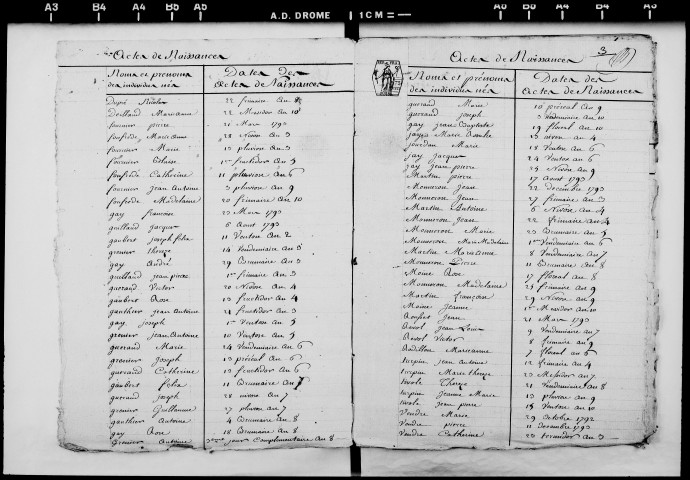 A3 B4 A4 B5 A5
A.D. DROME
1CM
A5 B5 A4 B4 A3
Actes de Naissances
Noms et prénoms des individus nés
Dates des Actes de Naissances
22 frimaire an
Deilland Marianne 22 Messidor an 10
pierre 21 Mars 1793
fonfrède Marianne 28 Nivose an 3
fournier Marie 13 pluviose an 3
fournier 1er fructidor an 5
fonfrède Catherine 11 pluviose an 6
fournier Jean Antoine 3 pluviose an 9
fonfrède Madelaine 20 frimaire an 10
gay francois 23 Mars 1793
guilland Jacques 6 aout 1793
gaubert joseph felix 11 Ventose an 2
grenier therèse 14 Vendemiaire an 3
gay André 29 Brumaire an 3
guilland jean pierre 1er frimaire an 3
guerand Victor 20 Nivose an 4
gaubert Rose 13 fructidor an 4
gauthier jean antoine 21 fructidor an 3
gay joseph 1er Ventose an 5
grenier jean Antoine 10 Ventose an 5
guerand Marie 24 Vendemiaire an 6
grenier Joseph 13 prérial an 6
guerand Catherine 12 fructidor an 6
gaubert felix 11 Brumaire an 7
guerand joseph 28 nivose an 7
grenier Guillaume 27 pluviose an 7
gauthier antoine 4 Brumaire an 8
gay Rose 18 Brumaire an 8
Grenier Antoine jour Complementaire an 8
Actes de Naissances
3
Noms et prénoms des individus nés
Dates des Actes de Naissances
guerand Marie 10 prérial an 9
guerand joseph 3 Vendemiaire an 10
gay jean Baptiste 19 floréal an 10
Marie Rosalie 25 nivose an 4
jourdan Marie 18 Ventose an 6
jay Jacques 24 Ventose an 6
jay jean pierre 25 Nivose an 9
Martin pierre 17 aout 1793
Monneron Jean 22 decembre 1793
Monneron Jean 27 frimaire an 3
Martin Antoine 6 Nivose an 4
Monneron jean 22 frimaire an 4
Monneron Marie 23 Brumaire an 5
Monneron Marie Madelaine 1er Vendemiaire an 6
Martin Marianne 8 Vendemiaire an 7
Monneron Pierre 11 Brumaire an 8
Moine Rose 17 floréal an 8
Monneron Madelaine 23 frimaire an 9
Martin françois 29 Nivose an 9
Moine Jeanne 1er Messidor an 10
Jean 21 Mars 1793
Jean Louis 9 Vendemiaire an 7
Victor 8 frimaire an 9
Marianne 7 floréal an 6
turpin jean antoine frimaire an 4
turpin Marie therèse 23 Messidor an 7
Therèse 21 Vendemiaire an 8
turpin Jeanne Marie 13 pluviose an 9
jean pierre 13 Ventose an 10
Vendre Marie 29 Octobre 1792
Vendre pierre 11 decembre 1793
Vendre Catherine 23 an 3